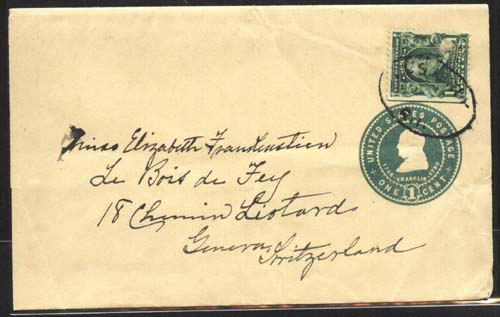 UNITED STATES POSTAGE
FRANKLIN
ONE 1 CENT
Miss Elizabeth Frankenstien
Le Bois de Fey
18 Chemin Liotards
Geneva, Switzerland